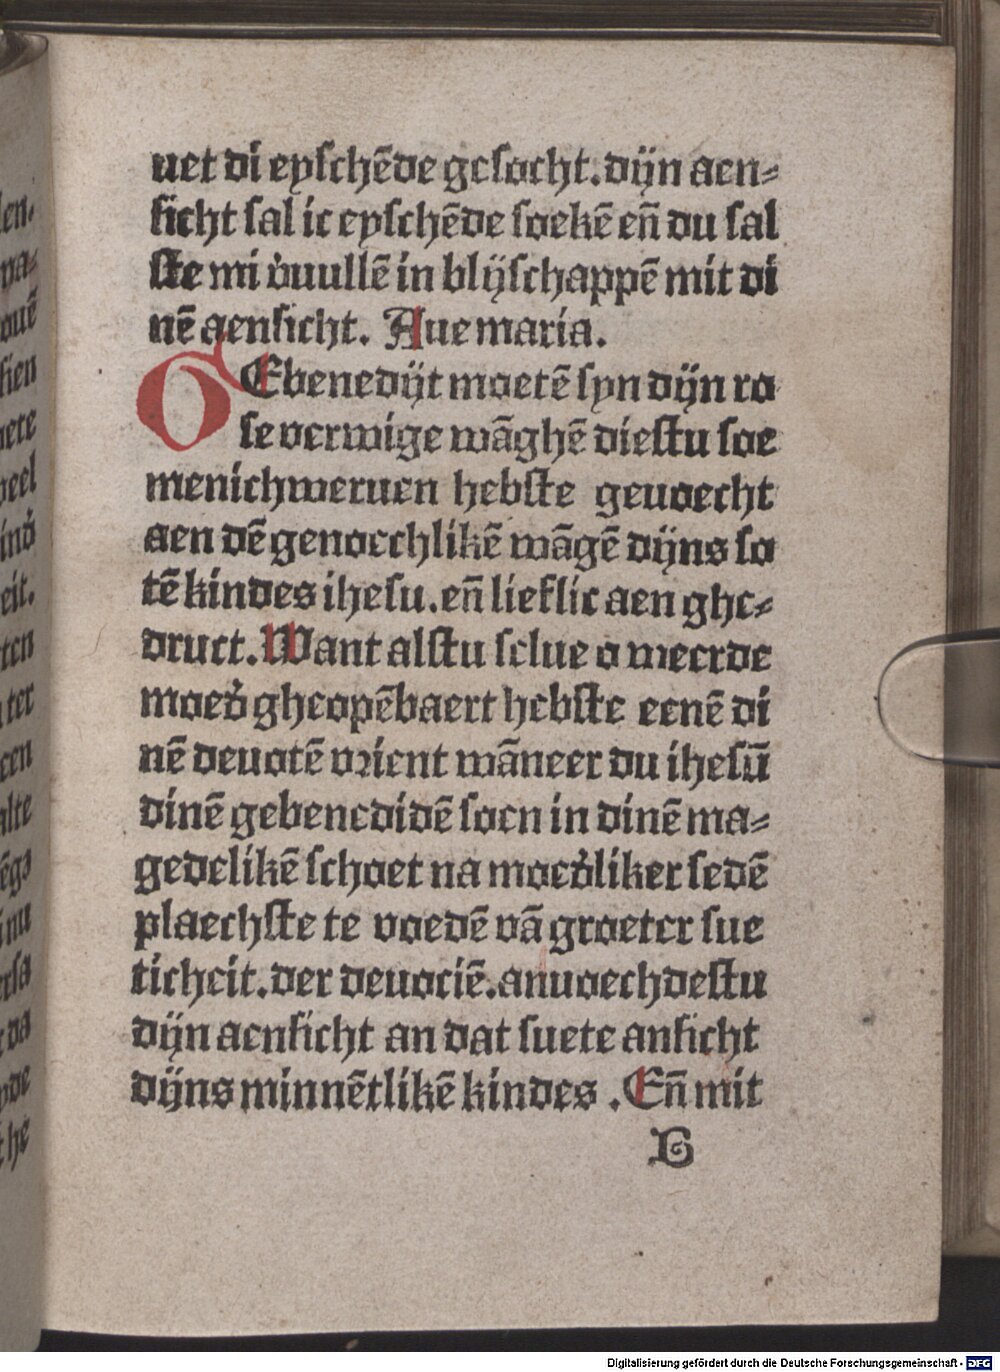 uet di eyschēde gesocht. dijn aen⸗
sicht sal ic eyschēde soekē eñ du sal
ste mi v̉uullē in blijschappē mit di
nē aensicht. Aue maria.
GEbenedijt moetē syn dijn ro
se verwige wāghē diestu soe
menichweruen hebste geuoecht
aen dē genoechlikē wāgē dijns so
tē kindes ihesu. eñ lieflic aen ghe⸗
druct. Want alstu selue o weerde
moed̉ gheopēbaert hebste eenē di
nē deuotē vrient wāneer du ihesū
dinē gebenedidē soen in dinē ma⸗
gedelikē schoet na moed̉liker sedē
plaechste te voedē vā groeter sue
ticheit. der deuociē. anuoechdestu
dijn aensicht an dat suete ansicht
dijns minnētlikē kindes . Eñ mit
G
Digitalisierung gefördert durch die Deutsche Forschungsgemeinschaft - DFG